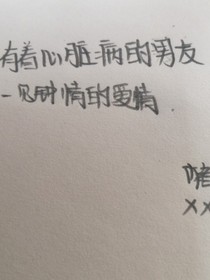 有着心脏病的男友
一见钟情的爱情